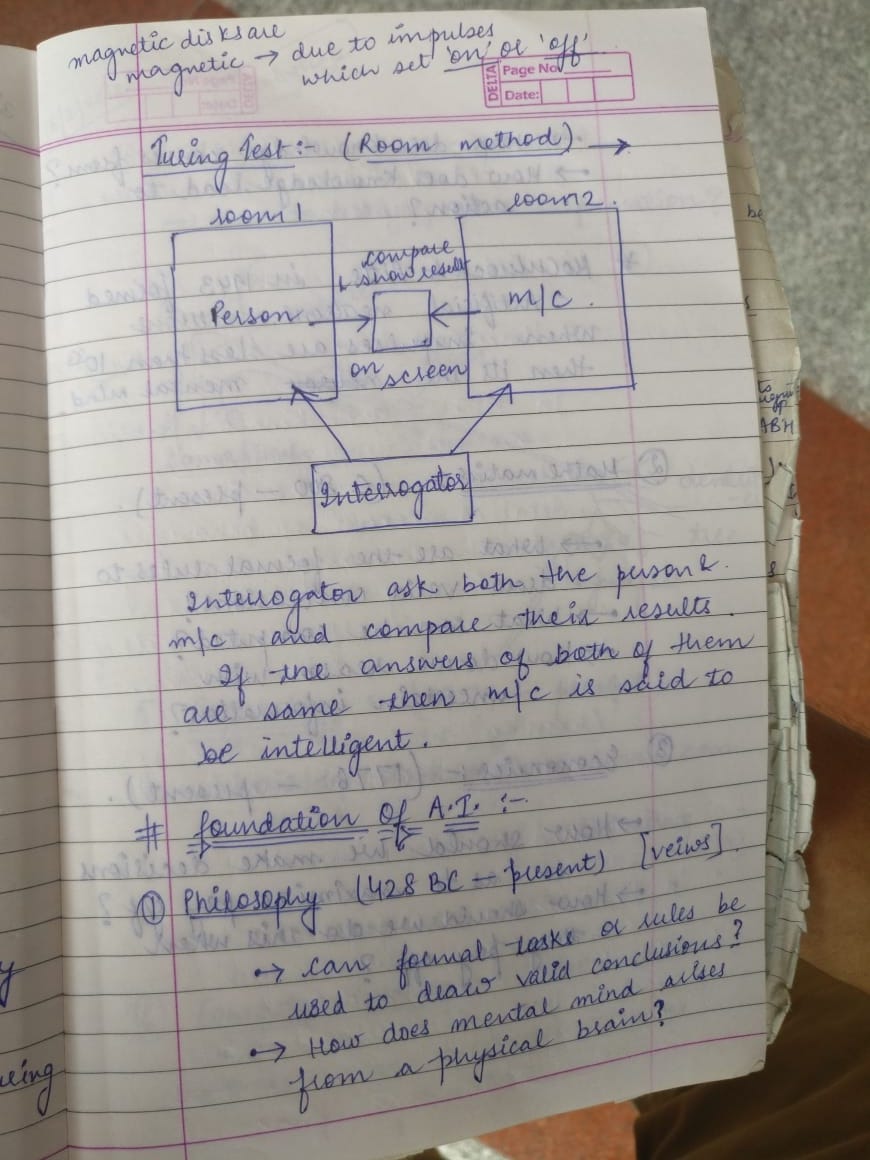 magnetic disks are
magnetic → due to impulses
which set 'on' or 'off'
DELTA
Page No
Date:
Turing Test :- (Room method) →
room 1
room 2.
compare
& show result
Person
m/c .
on screen
Interrogator
Interrogator ask both the person &
m/c and compare their results.
If the answers of both of them
are same then m/c is said to
be intelligent.
# foundation of A.I. :-
① Philosophy (428 BC - present) [veiws].
→ can formal tasks or rules be
used to draw valid conclusions?
→ How does mental mind arises
from a physical brain?